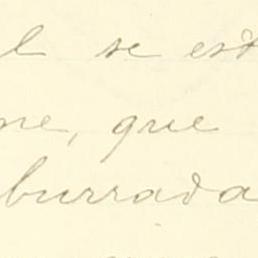 l se est
ne, que
burrada